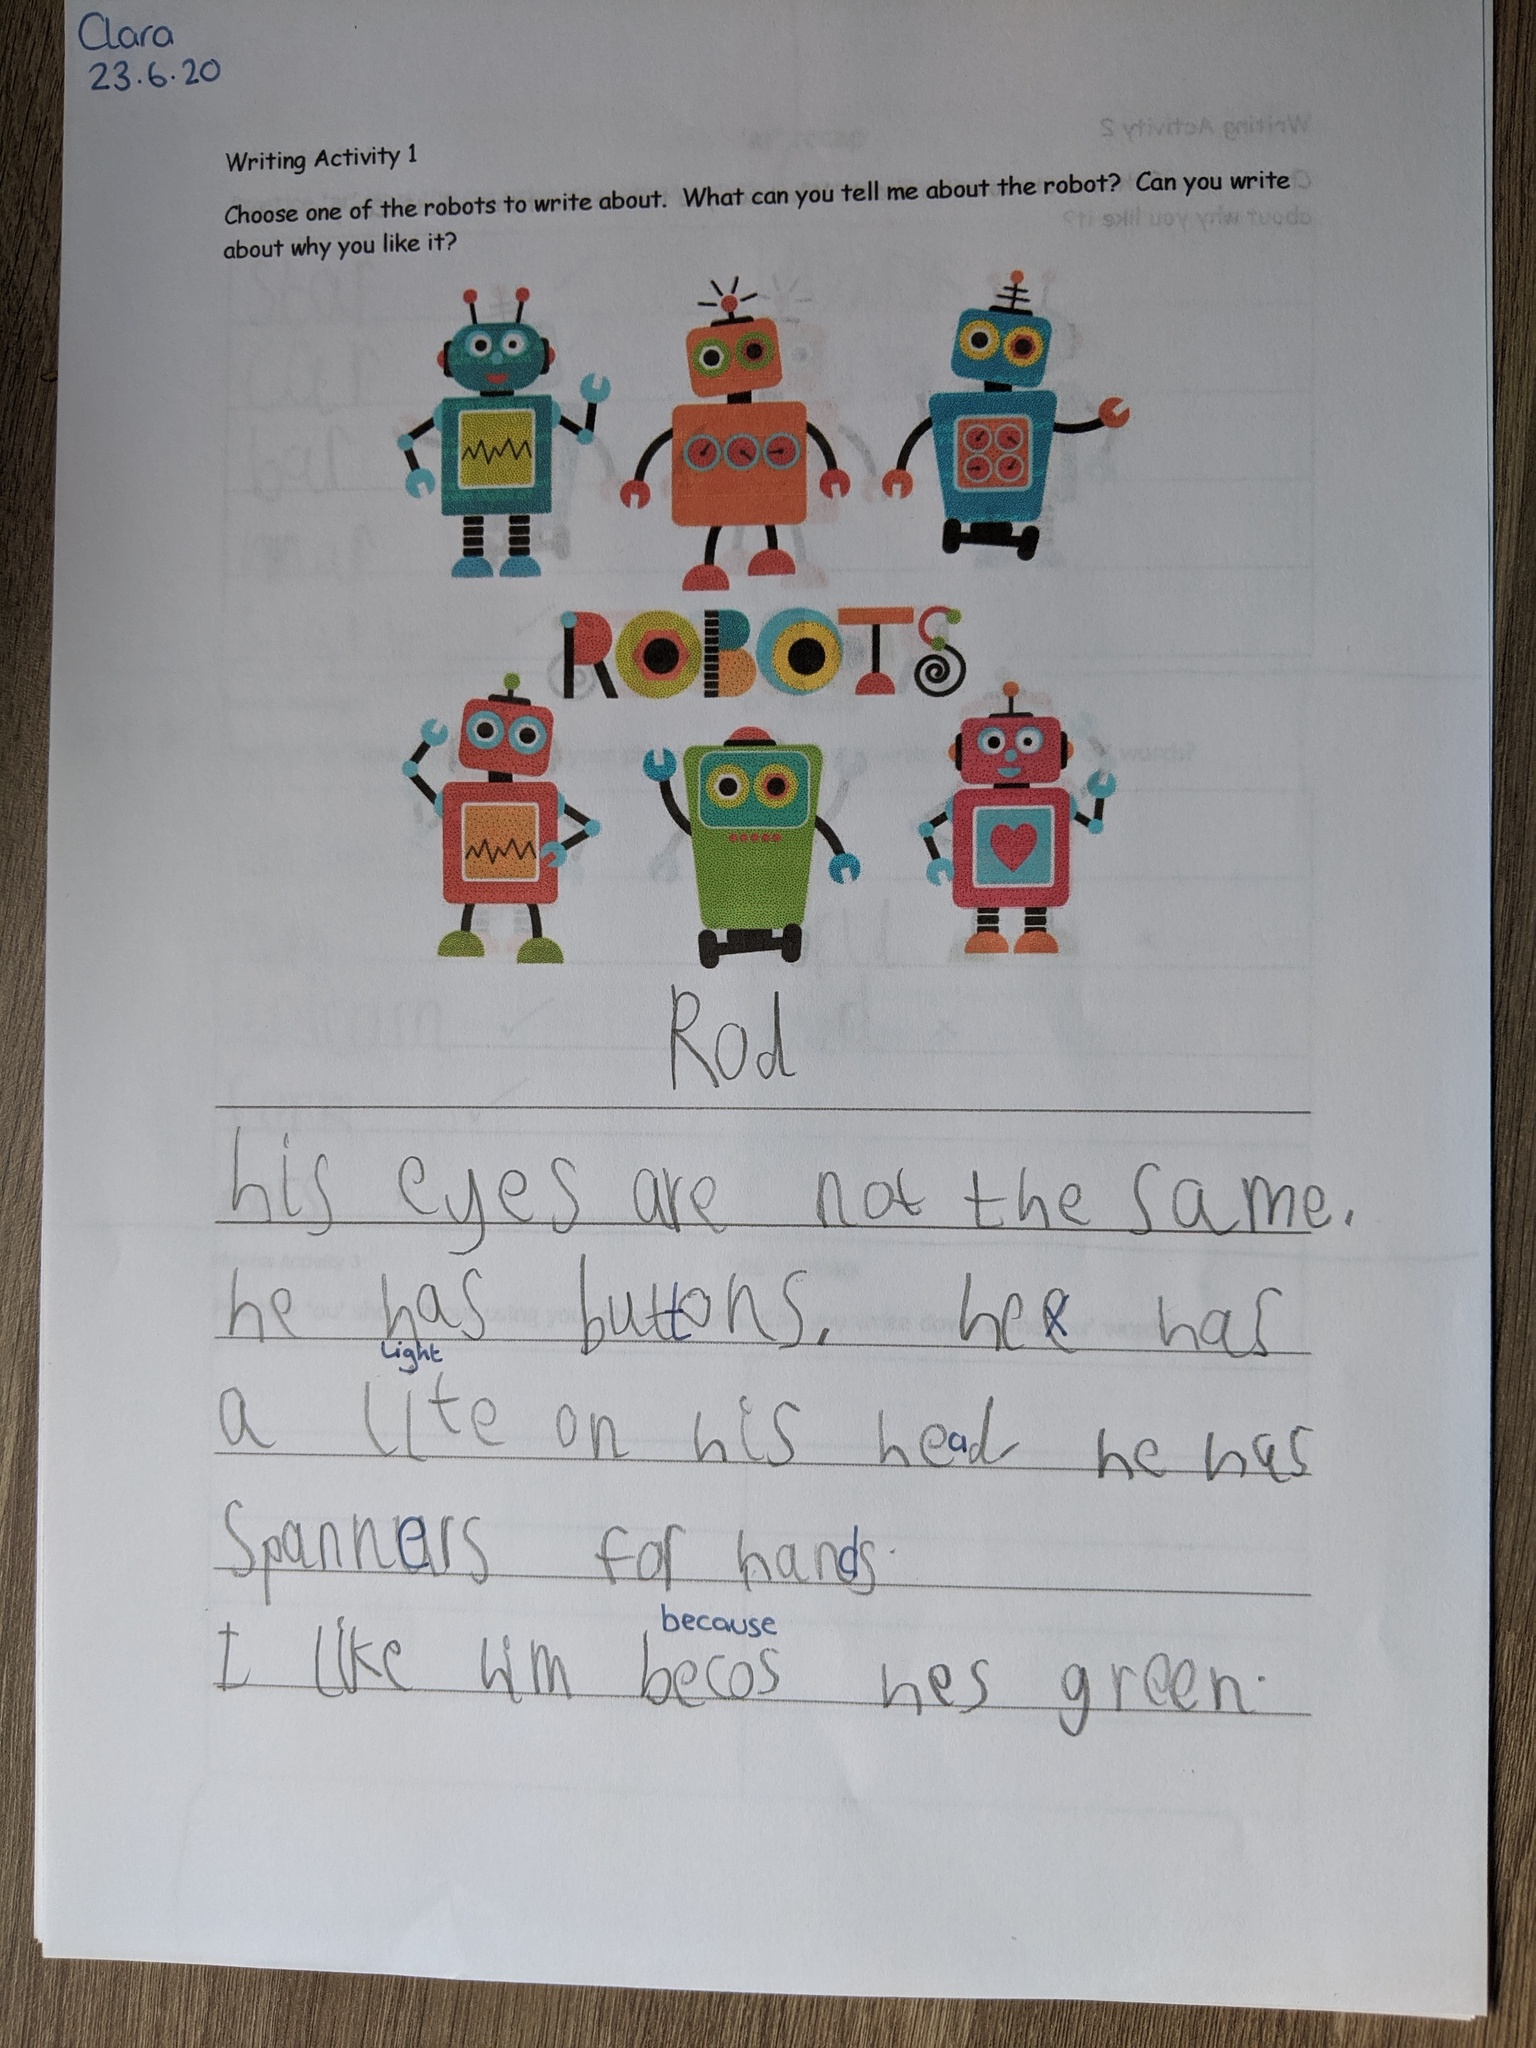 Clara
23.6.20
Writing Activity 1
Choose one of the robots to write about. What can you tell me about the robot? Can you write
about why you like it?
ROBOTS
Rod
his eyes are not the same.
he has buttons. hee has
light
a lite on his head he has
Spanners for hands.
because
I like him becos hes green.